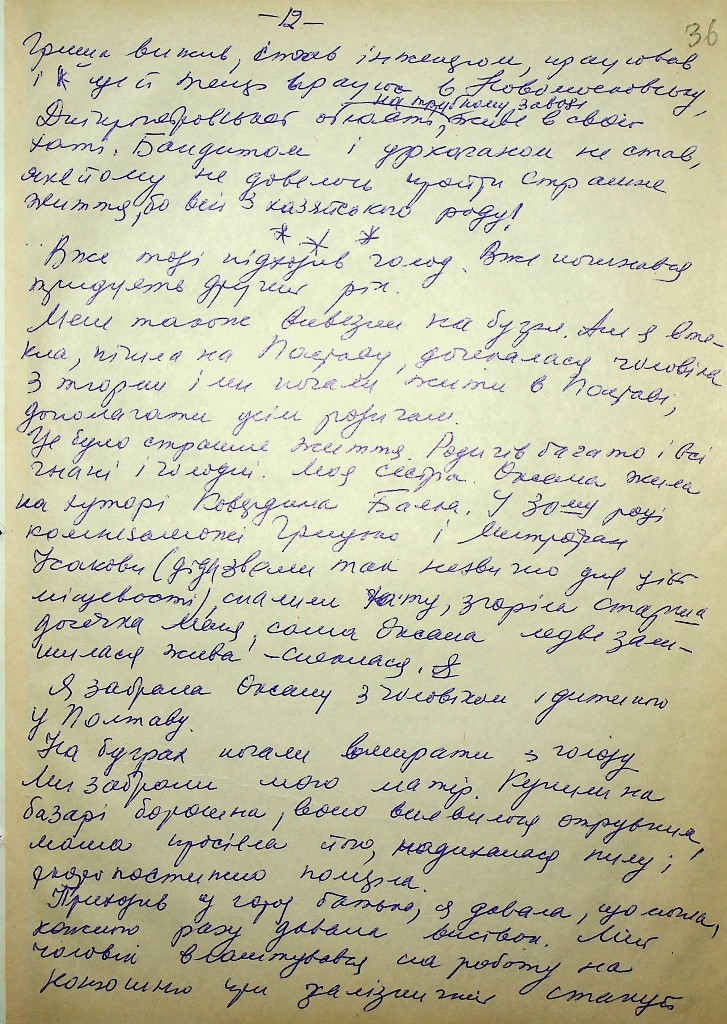 -12-
36
Гриша вижив, став інженером, працював
і ще й тепер працює в Новомосковську,
на трубному заводі
Дніпропетровської області, живе в своїй
хаті. Бандитом і урканом не став,
яке йому не довелось пройти страшне
життя, бо він з хазяйського роду!
* * *
Вже тоді підходив голод. Вже починався
тридцять другий рік.
Мене також вивезли на бугри. Але я вте-
кла, пішла на Полтаву, дочекалася чоловіка
з тюрми і ми почали жити в Полтаві,
допомагати усім родичам.
Це було страшне життя. Родичів багато і всі
гнані і голодні. Моя сестра Оксана жила
на хуторі Ковердина Балка. У 30му році
комнезаможі Грицько і Митрофан
Исакови (діди звали так незвично для цієї
місцевості), спалили хату, згоріла старша
дочечка Маня, сама Оксана ледве зали-
шилася жива - спеклася.
Я забрала Оксану з чоловіком і дитиною
у Полтаву.
На буграх почали вмирати з голоду
Ми забрали мою матір. Купили на
базарі борошна, воно виявилося отруєним,
мама просіяла його, надихалася пилу і
скоропостижно померла.
Приходив у город батько, я давала, що могла,
кожного разу давала виствок. Мій
чоловік влаштувався на роботу на
конюшню при залізничній станції